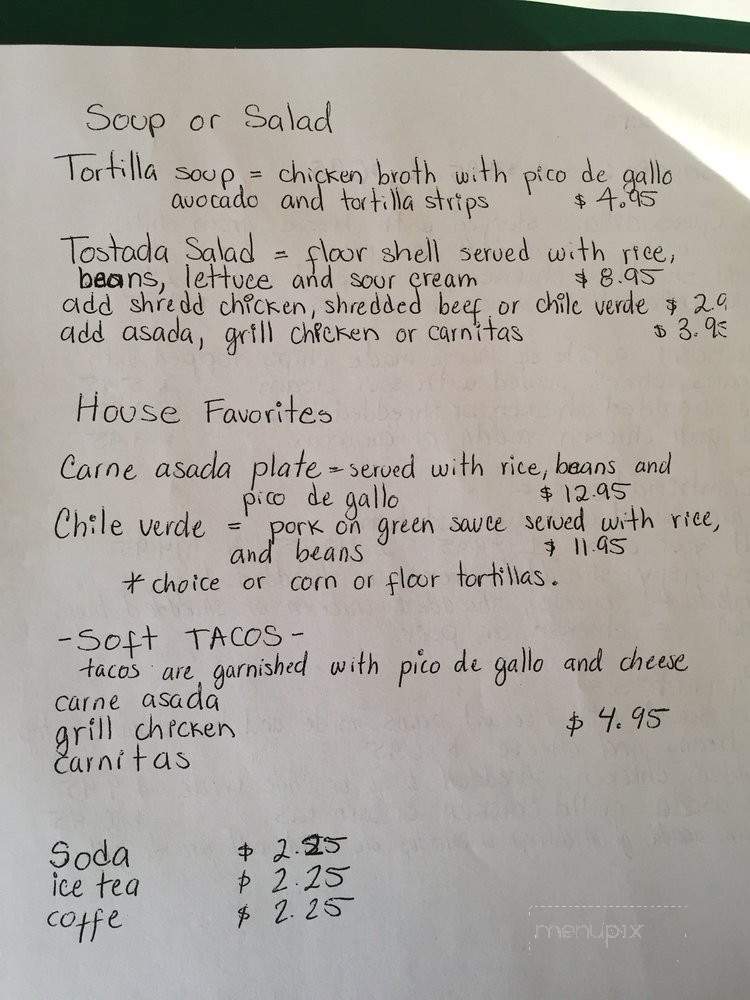 Soup or Salad
Tortilla soup = chicken broth with pico de gallo
avocado and tortilla strips $ 4.95
Tostada Salad = floor shell served with rice,
beans, lettuce and sour cream $ 8.95
add shredd chicken, shredded beef or chile verde $ 2.9
add asada, grill chicken or carnitas $ 3.95
House Favorites
Carne asada plate = served with rice, beans and
pico de gallo $ 12.95
Chile verde = pork on green sauce served with rice,
and beans $ 11.95
* choice or corn or floor tortillas.
- Soft TACOS -
tacos are garnished with pico de gallo and cheese
carne asada
grill chicken $ 4.95
carnitas
Soda $ 2.25
ice tea $ 2.25
coffe $ 2.25
menupix